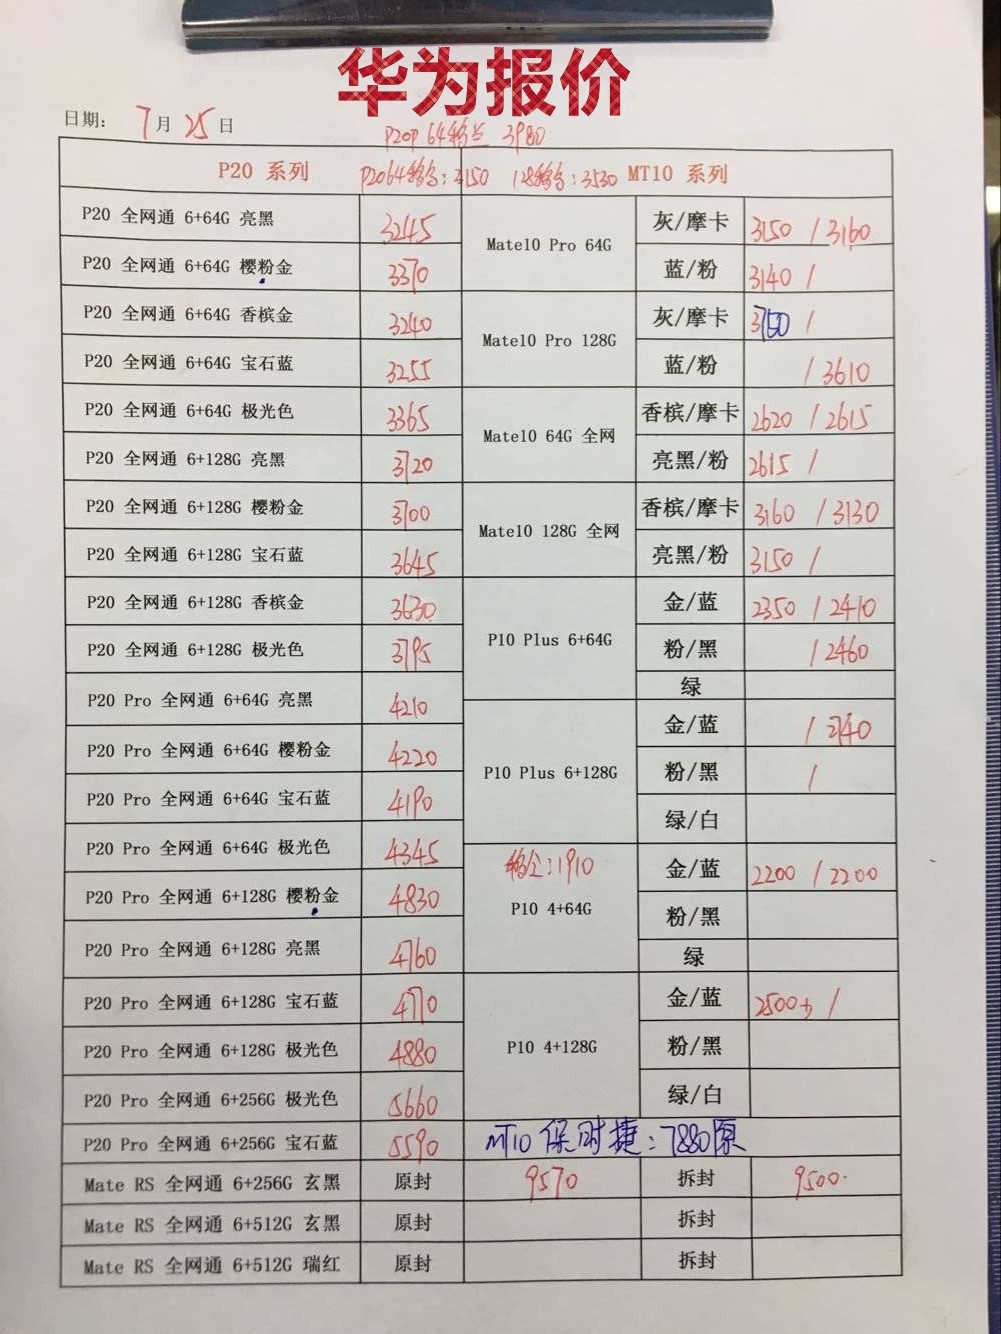 华为报价
日期: 7月25日
P20P 64移兰 3980
P20 系列 P20 64移乌:3150 128移乌:3530 MT10 系列
P20 全网通 6+64G 亮黑 3245 Mate10 Pro 64G 灰/摩卡 3150 / 3160
P20 全网通 6+64G 樱粉金 3370 蓝/粉 3140 /
P20 全网通 6+64G 香槟金 3240 Mate10 Pro 128G 灰/摩卡 /
P20 全网通 6+64G 宝石蓝 3255 蓝/粉 / 3610
P20 全网通 6+64G 极光色 3365 Mate10 64G 全网 香槟/摩卡 2620 / 2615
P20 全网通 6+128G 亮黑 3720 亮黑/粉 2615 /
P20 全网通 6+128G 樱粉金 3700 Mate10 128G 全网 香槟/摩卡 3160 / 3130
P20 全网通 6+128G 宝石蓝 3645 亮黑/粉 3150 /
P20 全网通 6+128G 香槟金 3630 P10 Plus 6+64G 金/蓝 2350 / 2410
P20 全网通 6+128G 极光色 3795 粉/黑 / 2460
绿
P20 Pro 全网通 6+64G 亮黑 4210 P10 Plus 6+128G 金/蓝 / 2740
P20 Pro 全网通 6+64G 樱粉金 4220 粉/黑 /
P20 Pro 全网通 6+64G 宝石蓝 4190 绿/白
P20 Pro 全网通 6+64G 极光色 4345 移全:1910 金/蓝 2200 / 2200
P20 Pro 全网通 6+128G 樱粉金 4830 P10 4+64G 粉/黑
P20 Pro 全网通 6+128G 亮黑 4760 绿
P20 Pro 全网通 6+128G 宝石蓝 4770 P10 4+128G 金/蓝 2500 /
P20 Pro 全网通 6+128G 极光色 4880 粉/黑
P20 Pro 全网通 6+256G 极光色 5660 绿/白
P20 Pro 全网通 6+256G 宝石蓝 5590 MT10 保时捷:7880原
Mate RS 全网通 6+256G 玄黑 原封 9570 拆封 9500.
Mate RS 全网通 6+512G 玄黑 原封 拆封
Mate RS 全网通 6+512G 瑞红 原封 拆封